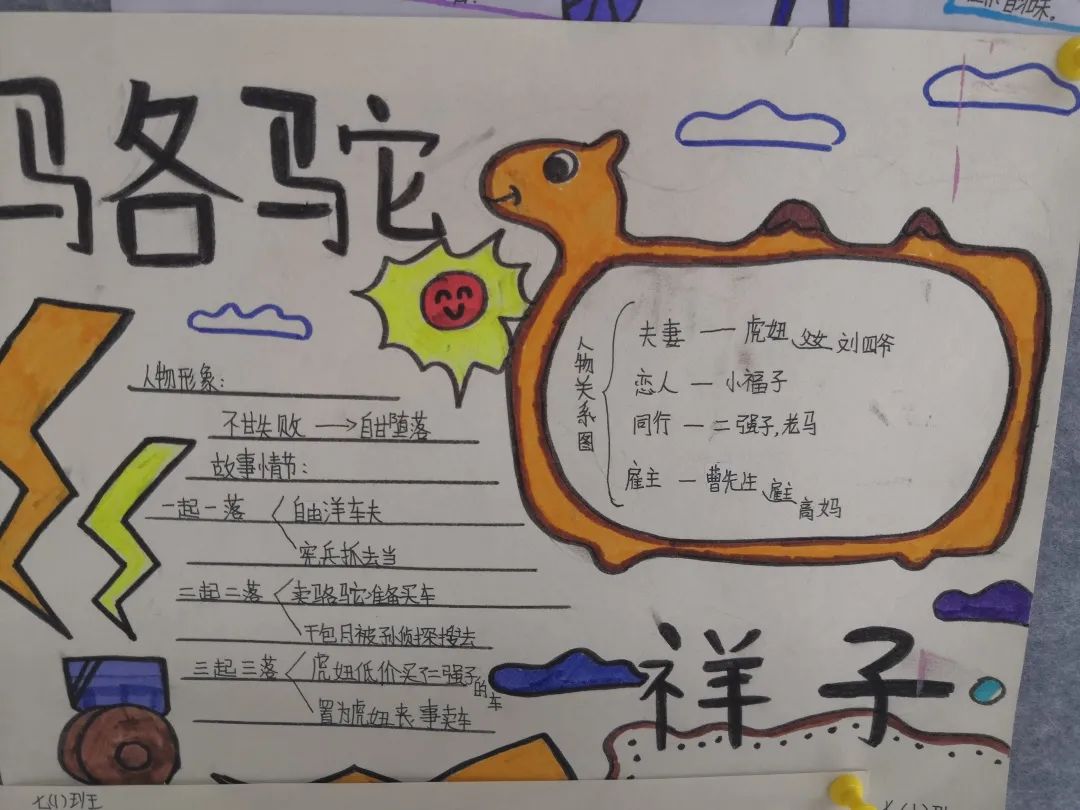 骆驼
人物形象:
不甘失败 → 自甘堕落
故事情节:
一起一落
自由洋车夫
宪兵抓去当
二起二落
卖骆驼准备买车
干包月被孙侦探搜去
三起三落
虎妞低价买二强子的车
置为虎妞丧事卖车
人物关系图
夫妻 — 虎妞 父女 刘四爷
恋人 — 小福子
同行 — 二强子,老马
雇主 — 曹先生 雇主 高妈
祥子
七(1)班王
七(1)班